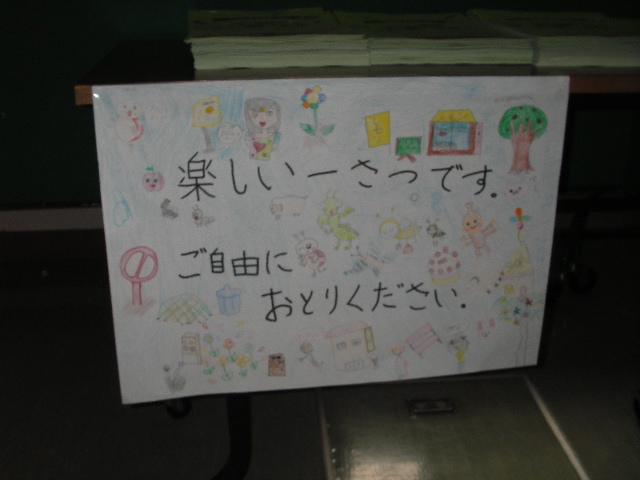 楽しい一さつです。
ご自由に
おとりください。